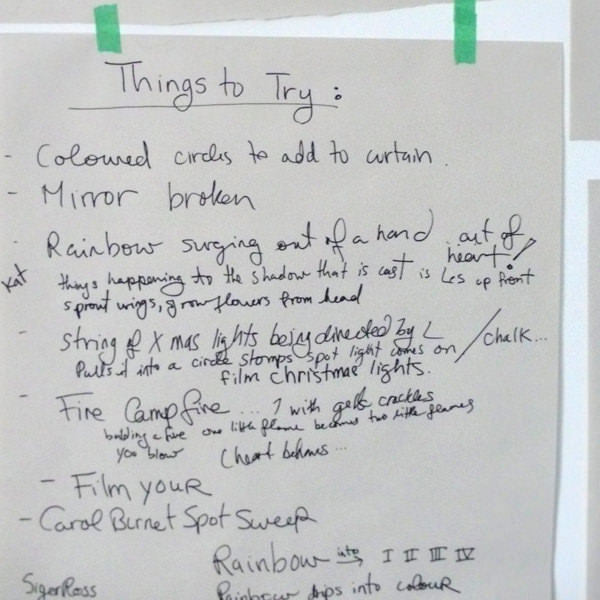 Things to Try :
- Coloured circles to add to curtain.
- Mirror broken
- Rainbow surging out of a hand out of heart!
Kat things happening to the shadow that is cast is Les up front
sprout wings, grow flowers from head
- String of Xmas lights being directed by L / chalk...
Pulls it into a circle stomps spot light comes on
film christmas lights.
- Fire Campfire ... 1 with gels crackles
building a fire one little flame becomes two little flames
you blow (heart behaves ...
- Film your
- Carol Burnet Spot Sweep
Rainbow into → I II III IV
Sigor Ross
Rainbow drips into colour